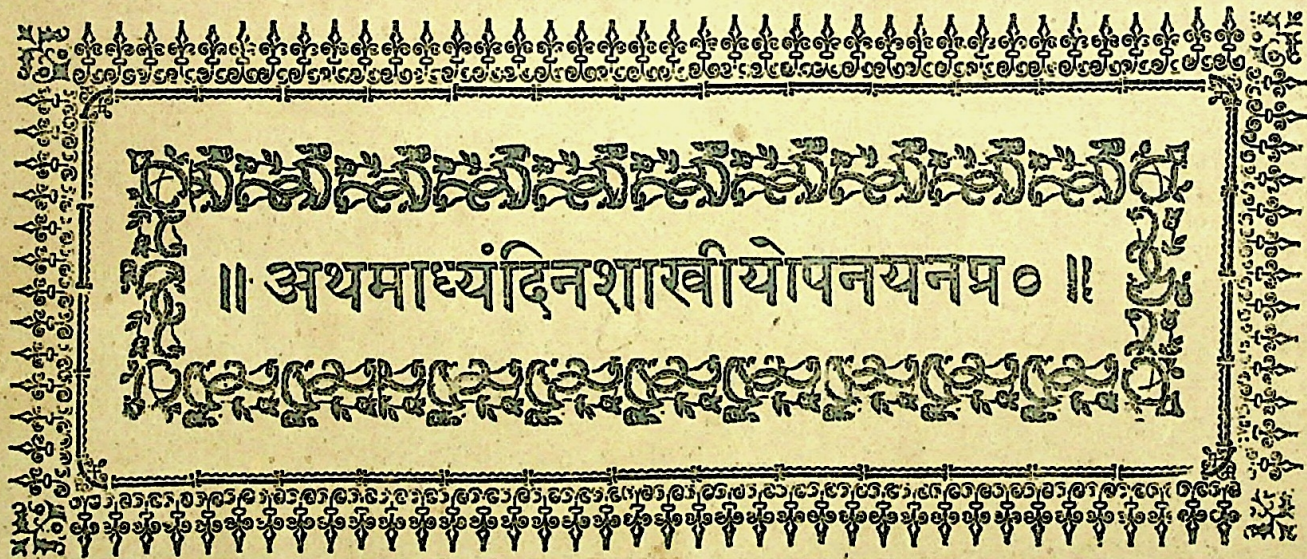 ॥ अथमाध्यंदिनशाखीयोपनयनप्र० ॥